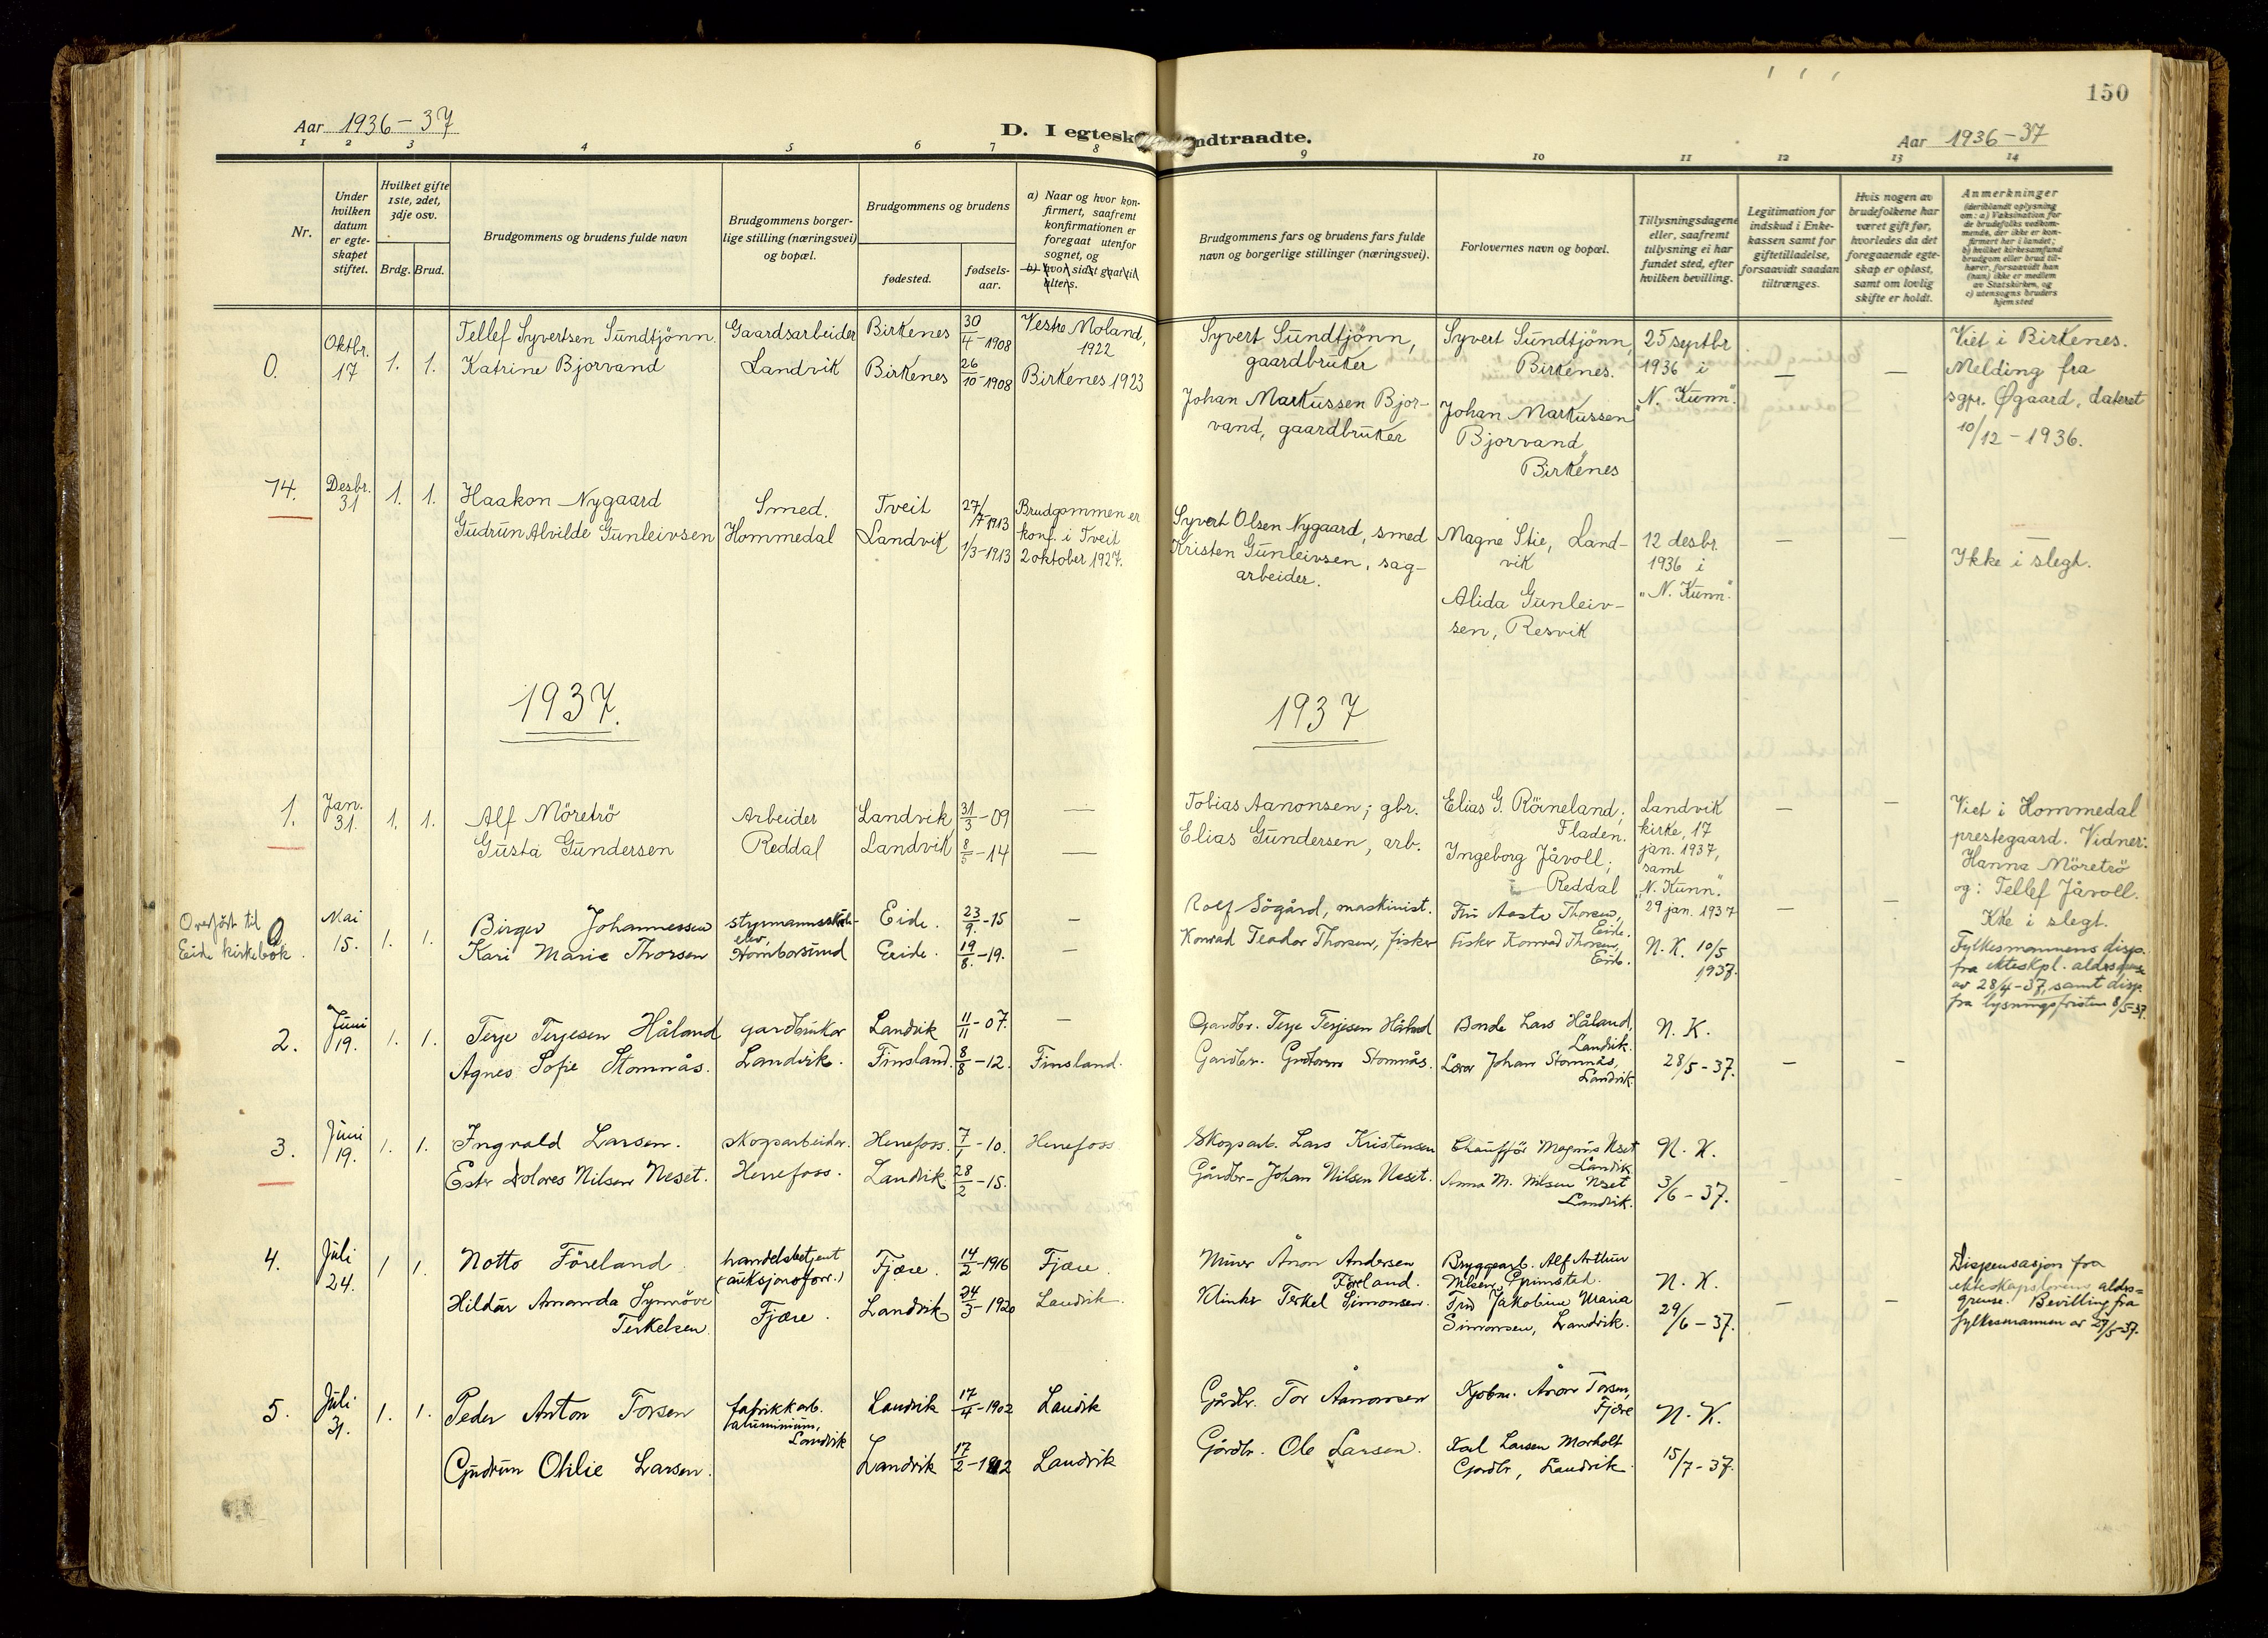 150
Aar 1936-37
D. I egtesk
ndtraadte.
Aar 1936-37
1 2 3 4 5 6 7 8 9 10 11 12 13 14
Nr.
Under
hvilken
datum
er egte-
skapet
stiftet.
Hvilket gifte
1ste, 2det,
3dje osv.
Brdg. Brud.
Brudgommens og brudens fulde navn
Brudgommens borger-
lige stilling (næringsvei)
og bopæl.
Brudgommens og brudens
fødested.
fødsels-
aar.
a) Naar og hvor kon-
firmert, saafremt
konfirmationen er
foregaat utenfor
sognet, og
b) hvor sidst gaat til
alters.
Brudgommens fars og brudens fars fulde
navn og borgerlige stillinger (næringsvei).
Forlovernes navn og bopæl.
Tillysningsdagene
eller, saafremt
tillysning ei har
fundet sted, efter
hvilken bevilling.
Legitimation for
indskud i Enke-
kassen samt for
giftetilladelse,
forsaavidt saadan
tiltrænges.
Hvis nogen av
brudefolkene har
været gift før,
hvorledes da det
foregaaende egte-
skap er opløst,
samt om lovlig
skifte er holdt.
Anmerkninger
(deriblandt oplysning
om: a) Vaksination for
de brudefolks vedkom-
mende, der ikke er kon-
firmert her i landet;
b) hvilket kirkesamfund
brudgom eller brud til-
hører, forsaavidt han
(hun) ikke er medlem
av Statskirken, og
c) utensogns bruders
hjemsted
0.
Oktbr.
17
1. 1.
Tellef Syvertsen Sundtjönn.
Katrine Bjorvand
Gaardsarbeider
Landvik
Birkenes
Birkenes
30/4-1908
26/10-1908
Vestre Moland,
1922
Birkenes 1923
Syvert Sundtjönn,
gaardbruker
Johan Markussen Bjor-
vand, gaardbruker
Syvert Sundtjönn,
Birkenes.
Johan Markussen
Bjorvand,
Birkenes
25 septbr
1936 i
"N. Kunn."
—
—
Viet i Birkenes.
Melding fra
sgpr. Øgaard, dateret
10/12-1936.
14.
Desbr.
31
1. 1.
Haakon Nygaard
Gudrun Alvilde Gunleivsen
Smed.
Hommedal
Tveit
Landvik
27/7-1913
1/3-1913
Brudgommen er
konf. i Tveit
2 oktober 1927.
Syvert Olsen Nygaard, smed
Kristen Gunleivsen, sag-
arbeider.
Magne Stie, Land-
vik
Alida Gunleiv-
sen, Resvik
12 desbr.
1936 i
"N. Kunn."
—
—
—
Ikke i slegt.
1937.
1937
1.
Jan.
31.
1. 1.
Alf Möretrö
Gusta Gundersen
Arbeider
Reddal
Landvik
Landvik
31/3-09
8/5-14
—
—
Tobias Aanonsen; gbr.
Elias Gundersen, arb.
Elias G. Röineland;
Fladen.
Ingeborg Jåvoll;
Reddal
Landvik
kirke, 17
jan. 1937,
samt
"N. Kunn."
29 jan. 1937
—
—
Viet i Hommedal
prestegaard. Vidner:
Hanna Möretrö
og: Tellef Jåvoll.
Ikke i slegt.
Overført til
Eide kirkebok.
0
Mai
15.
1. 1.
Birger Johannessen
Kari Marie Thorsen
styrmannsskole-
elev,
Homborsund
Eide.
Eeide.
23/9.-15
19/8.-19.
—
—
Rolf Sögård, maskinist.
Konrad Teodor Thorsen, fisker
Fru Aasta Thorsen,
Eide.
Fisker Konrad Thorsen,
Eide.
N. K. 10/5
1937.
Fylkesmannens disp.
fra ekteskpl. aldersgrense
av 28/4-37, samt disp.
fra lysningsfristen 8/5-37.
2.
Juni
19.
1. 1.
Terje Terjesen Håland
Agnes Sofie Stomnås.
gardbruker
Landvik.
Landvik
Finsland.
11/11-07.
8/8-12.
—
Finsland.
Gardbr. Terje Terjesen Håland
Gardbr. Guttorm Stomnås.
Bonde Lars Håland,
Landvik.
Lærer Johan Stomnås,
Landvik.
N. K.
28/5-37.
—
—
3.
Juni
19.
1. 1.
Ingvald Larsen.
Ester Dolores Nilsen Neset.
skogsarbeider.
Herefoss.
Herefoss.
Landvik.
7/1-10.
28/2-15.
Herefoss
Skogsarb. Lars Kristensen
Gårdbr. Johan Nilsen Neset.
Chauffør Magnus Neset
Landvik
Anna M. Nilsen Neset
Landvik.
N. K.
3/6-37.
-
-
4.
Juli
24.
1 1.
Notto Föreland
Hildur Amanda Synnöve
Terkelsen.
handelsbetjent
(auksjonsforr.)
Fjære.
Fjære.
Landvik
14/2-1916
24/3-1920
Fjære.
Landvik.
Murer Ånon Andersen
Föreland.
Klinker Terkel Simonsen.
Bryggearb. Alf Arthur
Nilsen, Grimstad.
Fru Jakobine Maria
Simonsen, Landvik.
N. K.
29/6-37.
—
—
Dispensasjon fra
ekteskapslovens alders=
grense. Bevilling fra
fylkesmannen av 27/5-37.
5.
Juli
31.
1. 1.
Peder Anton Torsen
Gudrun Otilie Larsen.
fabrikkarb.
(aluminium,
Landvik
Landvik
Landvik
17/4-1902
17/2-1912
Landvik
Landvik
Gårdbr. Tor Aanonsen
Gårdbr. Ole Larsen.
Kjobm. Ånon Torsen,
Fjære
Karl Larsen Morholt
Gardbr, Landvik.
N. K.
15/7-37.